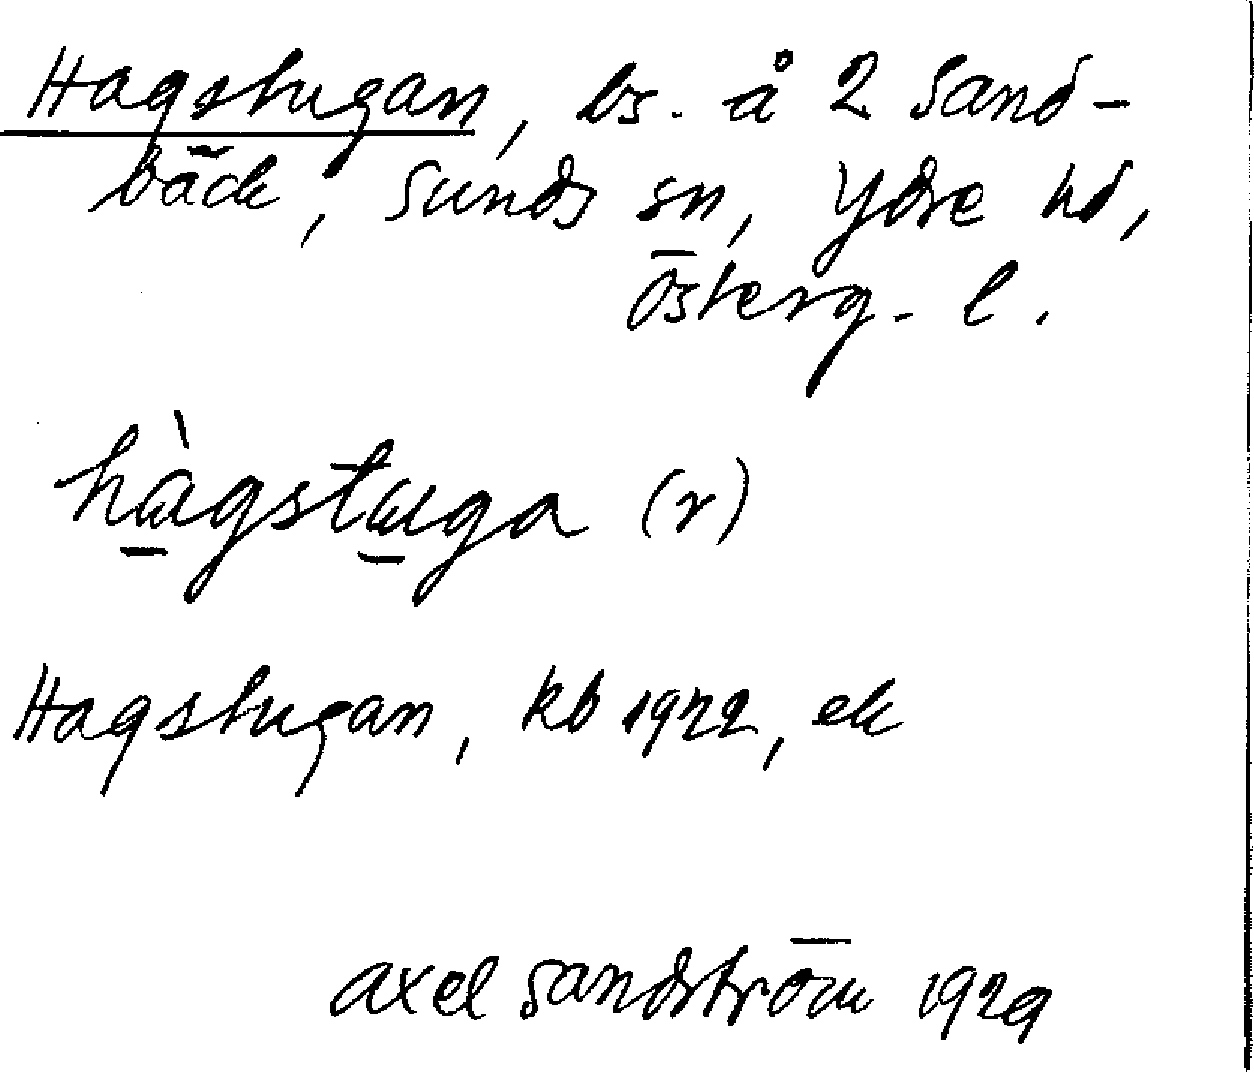 Hagstugan, bs. å 2 Sand-
bäck, Sunds sn, Ydre hd,
Österg. l.
hàgstuga (r)
Hagstugan, kb 1922, ek
Axel Sandström 1929